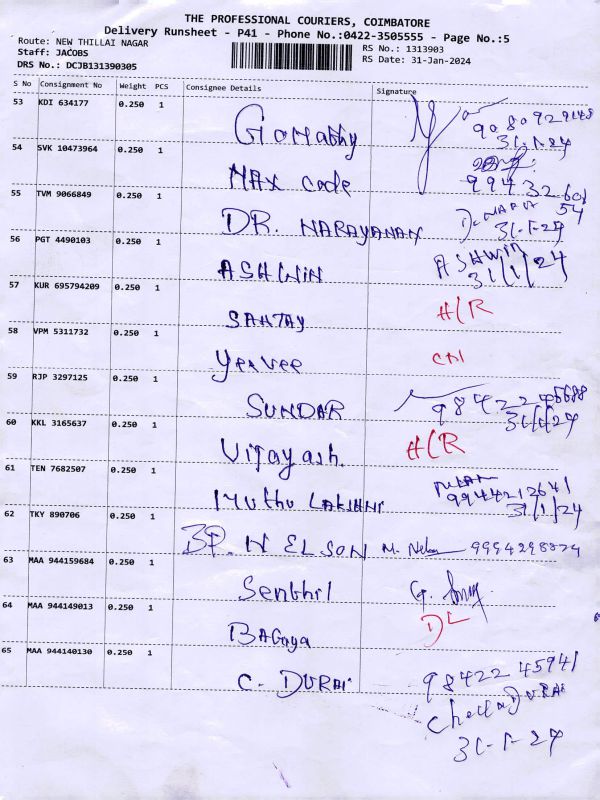 THE PROFESSIONAL COURIERS, COIMBATORE
Delivery Runsheet - P41 - Phone No.:0422-3505555 - Page No.:5
Route: NEW THILLAI NAGAR
Staff: JACOBS
DRS No.: DCJB131390305
RS No.: 1313903
RS Date: 31-Jan-2024
S No Consignment No Weight PCS Consignee Details Signature
53 KDI 634177 0.250 1
Gomathy 9080929148
31-1-24
54 SVK 10473964 0.250 1
MAX Code 99432601
54
55 TVM 9066849 0.250 1
DR. NARAYANAN 31-1-24
56 PGT 4490103 0.250 1
ASHWIN ASHWIN
31/1/24
57 KUR 695794209 0.250 1
SANJAY H/R
58 VPM 5311732 0.250 1
Yeevee
59 RJP 3297125 0.250 1
SUNDAR
31/1/24
60 KKL 3165637 0.250 1
Vijayash. H/R
61 TEN 7682507 0.250 1
Muthu LAKSHMI 9944212641
31/1/24
62 TKY 890706 0.250 1
N ELSON 9994298874
63 MAA 944159684 0.250 1
Senthil
64 MAA 944149013 0.250 1
DL
65 MAA 944140130 0.250 1
C. DURAI 98422 45941
Chella DURAI
31-1-24